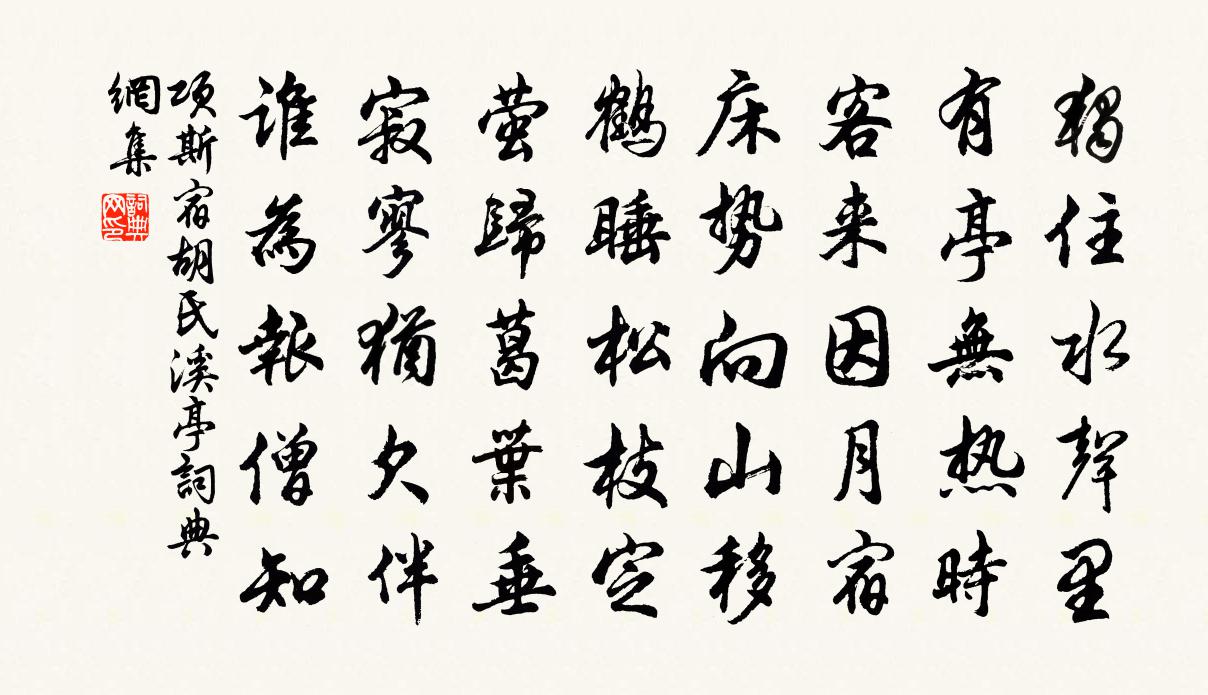 獨住水聲里
有亭無熱時
客来因月宿
床勢向山移
鶴睡松枝定
萤歸葛葉垂
寂寥猶欠伴
谁為報僧知
項斯宿胡氏溪亭詞典
網集
詞典网印